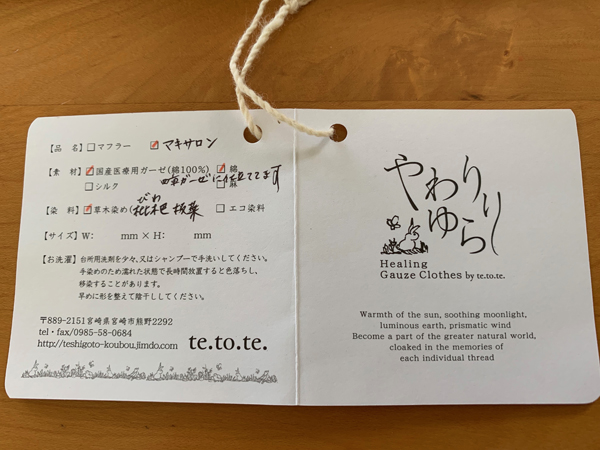 【品 名】□マフラー ☑マキサロン
【素 材】☑国産医療用ガーゼ(綿100%) ☑綿
四重ガーゼに仕立ててます
□シルク □麻
びわ
【染 料】☑草木染め(枇杷 板葉 □エコ染料
【サイズ】W: mm × H: mm
【お洗濯】台所用洗剤を少々、又はシャンプーで手洗いしてください。
手染めのため濡れた状態で長時間放置すると色落ちし、
移染することがあります。
早めに形を整えて陰干ししてください。
〒889-2151宮崎県宮崎市熊野2292
tel・fax/0985-58-0684
http://teshigoto-koubou.jimdo.com
te.to.te.
やわりゆらり
Healing
Gauze Clothes by te.to.te.
Warmth of the sun, soothing moonlight,
luminous earth, prismatic wind
Become a part of the greater natural world,
cloaked in the memories of
each individual thread